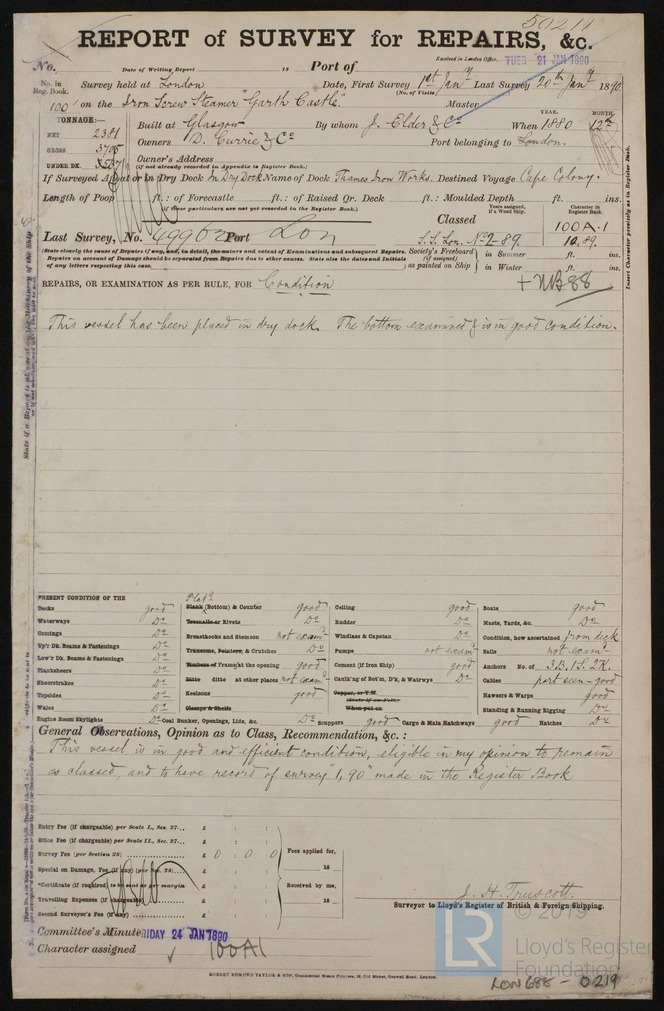 50211
REPORT of SURVEY for REPAIRS, &c.
Received in London Office,
TUES 21 JAN 1890
No. Date of Writing Report 18 Port of
No. in Reg. Book.
Survey held at London Date, First Survey 1st Jany Last Survey 20th Jany 1890
(No. of Visits
100 on the Iron Screw Steamer "Garth Castle" Master
TONNAGE:—
YEAR. MONTH.
Built at Glasgow By whom J. Elder & Co When 1880 12th
NET 2381
Owners D. Currie & Co Port belonging to London.
GROSS 3705
Owner's Address
UNDER DK. 3537
(if not already recorded in Appendix to Register Book.)
If Surveyed Afloat or in Dry Dock In Dry Dock Name of Dock Thames Iron Works. Destined Voyage Cape Colony.
Length of Poop ft.: of Forecastle ft.: of Raised Qr. Deck ft.: Moulded Depth ft. ins.
(If these particulars are not yet recorded in the Register Book.)
Years assigned, if a Wood Ship.
Character in Register Book.
Classed 100A.1
Last Survey, No. 49962 Port Lon S.S. Lon. No 2-89. 10,89.
(State clearly the cause of Repairs if any, and, in detail, the nature and extent of Examinations and subsequent Repairs.
Repairs on account of Damage should be separated from Repairs due to other causes. State also the dates and Initials
of any letters respecting this case.
Society's Freeboard (if assigned) as painted on Ship
in Summer ft. ins.
in Winter ft. ins.
Insert Character precisely as in Register Book.
REPAIRS, OR EXAMINATION AS PER RULE, FOR Condition
+ NB 88
This vessel has been placed in dry dock. The bottom examined & is in good condition.
PRESENT CONDITION OF THE
Decks good
Waterways Do
Comings Do
Up'r Dk. Beams & Fastenings Do
Low'r Dk. Beams & Fastenings Do
Planksheers Do
Sheerstrakes Do
Topsides Do
Wales Do
Engine Room Skylights Do
Platg
Plank (Bottom) & Counter good
Treenails or Rivets Do
Breasthooks and Stemson not examd
Transoms, Pointers, & Crutches Do
Timbers of Frame at the opening good
Ditto ditto at other places not examd
Keelsons good
Clamps & Shelfs
Coal Bunker, Openings, Lids, &c. Do
Ceiling good
Rudder Do
Windlass & Capstan Do
Pumps not examd
Cement (if Iron Ship) good
Caulk'ng of Bot'm, D'k, & Watrways Do
Copper, or Y.M.
(State if on Felt)
When put on
Scuppers good Cargo & Main Hatchways good
Boats good
Masts, Yards, &c. Do
Condition, how ascertained from deck
Sails not examd
Anchors No. of 3B.1S.2K.
Cables part seen - good
Hawsers & Warps good
Standing & Running Rigging Do
Hatches Do
General Observations, Opinion as to Class, Recommendation, &c.:
This vessel is in good and efficient condition, eligible in my opinion to remain
as classed, and to have record of survey "1,90" made in the Register Book
Entry Fee (if chargeable) per Scale I., Sec. 27... £ : :
Office Fee (if chargeable) per Scale II., Sec. 27... £ : :
Survey Fee (per Section 28) £ 0 : 0 : 0
Special on Damage, Fee (if any) (per Sec. 28)... £ : :
*Certificate (if required) to be sent as per margin £
Travelling Expenses (if chargeable) £
Second Surveyor's Fee (if any) £
Fees applied for,
18
Received by me,
18
J. H. Truscott.
Surveyor to Lloyd's Register of British & Foreign Shipping.
Committee's Minute FRIDAY 24 JAN 1890
Character assigned 100A1
ROBERT EDMUND TAYLOR & SON, Commercial Steam Printers, 19, Old Street, Goswell Road, London.
© 2019
LR
Lloyd's Register
Foundation
LON 688 - 0219